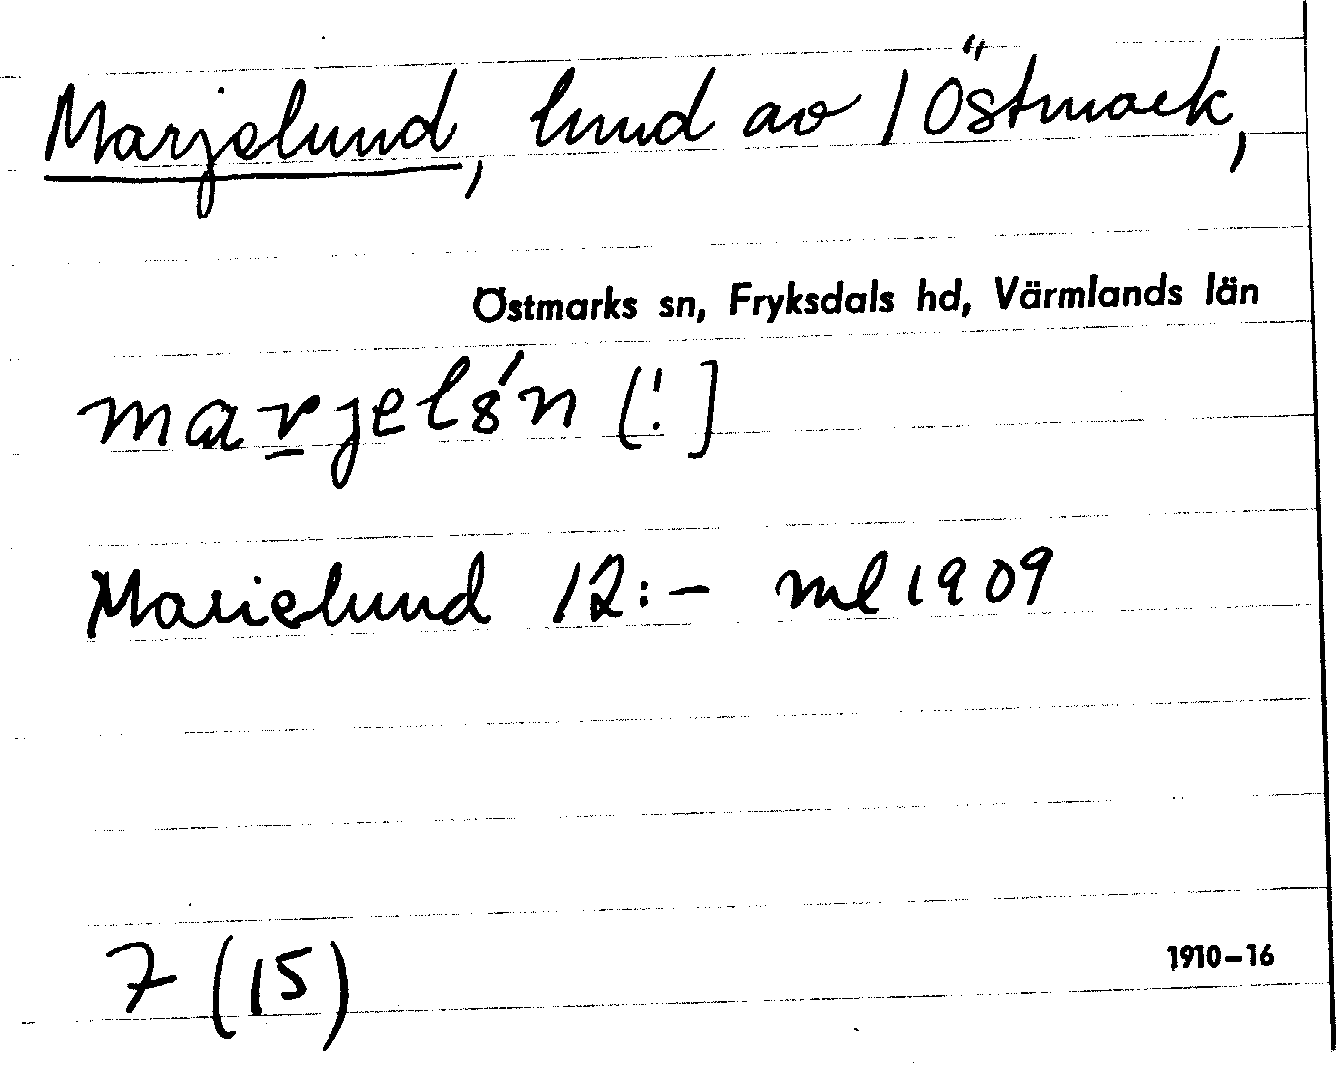 Marjelund, lund av 1 Östmark,
Östmarks sn, Fryksdals hd, Värmlands län
marjelón [!]
Marielund 12:- ml 1909
7 (15)
1910–16